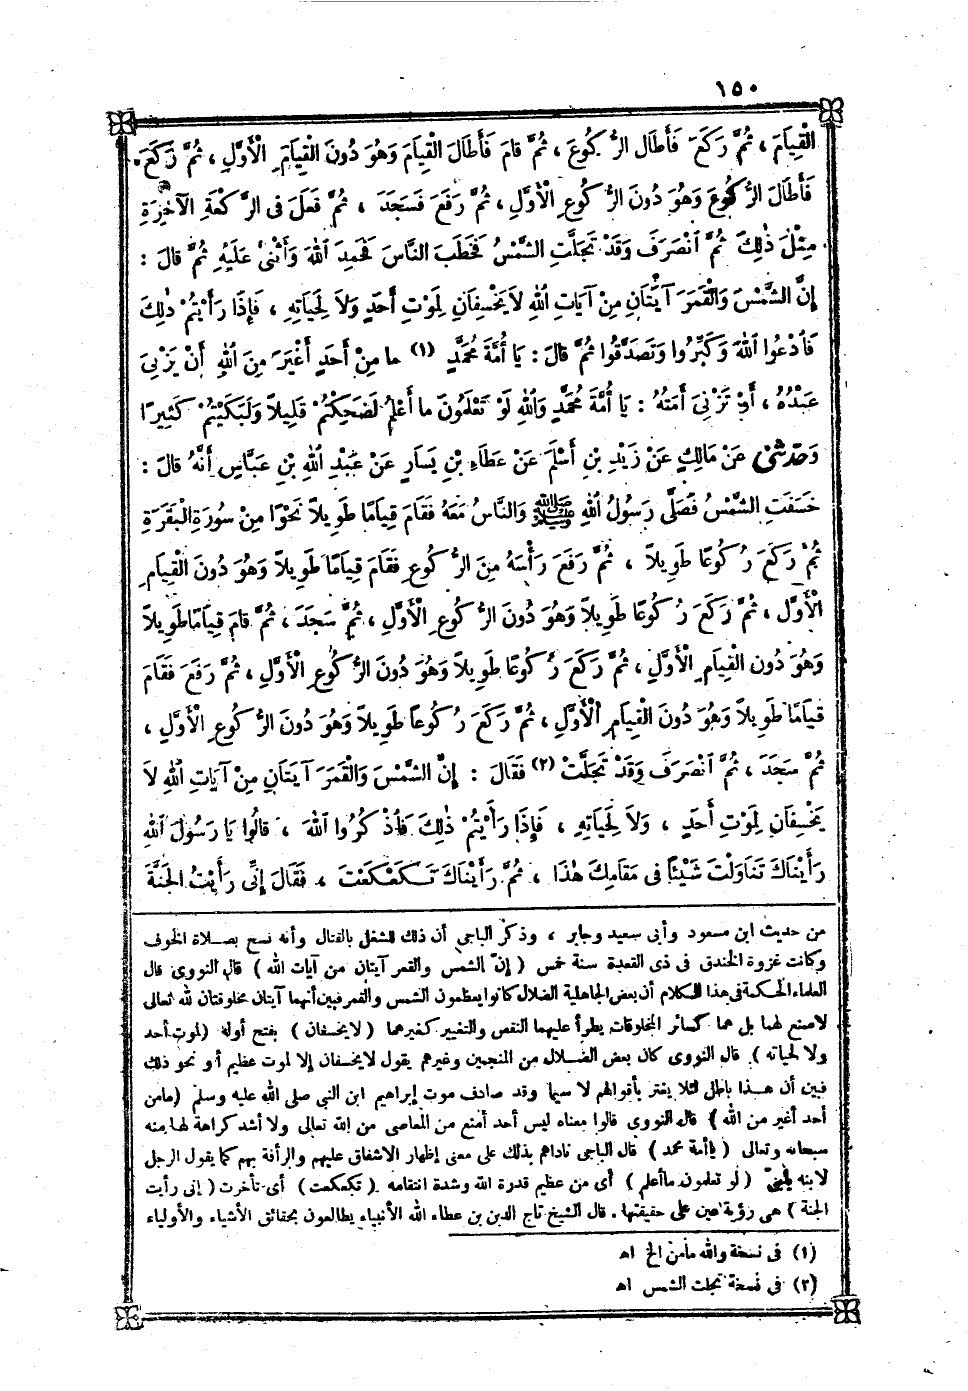 ١٥٠
الْقِيَامَ ، ثُمَّ رَكَعَ فَأَطَالَ الرُّكُوعَ ، ثُمَّ قامَ فَأَطَالَ الْقِيَامَ وَهُوَ دُونَ الْقِيَامِ الْأَوَّلِ ، ثُمَّ رَكَعَ
فَأَطَالَ الرُّكُوعَ وَهُوَ دُونَ الرُّكُوعِ الْأَوَّلِ ، ثُمَّ رَفَعَ فَسَجَدَ ، ثُمَّ فَعَلَ فى الرَّكْعَةِ الْآخِرَةِ
مِثْلَ ذٰلِكَ ثُمَّ انْصَرَفَ وَقَدْ تَجَلَّتِ الشَّمْسُ فَخَطَبَ النَّاسَ فَحَمِدَ اللهَ وَأَثْنَىٰ عَلَيْهِ ثُمَّ قالَ :
إِنَّ الشَّمْسَ وَالْقَمَرَ آيَتَانِ مِنْ آيَاتِ اللهِ لاَيَخْسِفَانِ لِمَوْتِ أَحَدٍ وَلاَ لِحَيَاتِهِ ، فَإِذَا رَأَيْتُمْ ذٰلِكَ
فَادْعُوا اللهَ وَكَبِّرُوا وَتَصَدَّقُوا ثُمَّ قالَ : يَا أُمَّةَ مُحَمَّدٍ (١) ما مِنْ أَحَدٍ أَغْيَرَ مِنَ اللهِ أَنْ يَزْنِىَ
عَبْدُهُ ، أَوْ تَزْنِىَ أَمَتُهُ : يَا أُمَّةَ مُحَمَّدٍ وَاللهِ لَوْ تَعْلَمُونَ ما أَعْلَمُ لَضَحِكْتُمْ قَلِيلاً وَلَبَكَيْتُمْ كَثِيرًا
وَحَدَّثَنِى عَنْ مَالِكٍ عَنْ زَيْدِ بْنِ أَسْلَمَ عَنْ عَطَاءِ بْنِ يَسَارٍ عَنْ عَبْدِ اللهِ بْنِ عَبَّاسٍ أَنَّهُ قالَ :
خَسَفَتِ الشَّمْسُ فَصَلَّى رَسُولُ اللهِ ﷺ وَالنَّاسُ مَعَهُ فَقَامَ قِيَامًا طَوِيلاً نَحْوًا مِنْ سُورَةِ الْبَقَرَةِ
ثُمَّ رَكَعَ رُكُوعًا طَوِيلاً ، ثُمَّ رَفَعَ رَأْسَهُ مِنَ الرُّكُوعِ فَقَامَ قِيَامًا طَوِيلاً وَهُوَ دُونَ الْقِيَامِ
الْأَوَّلِ ، ثُمَّ رَكَعَ رُكُوعًا طَوِيلاً وَهُوَ دُونَ الرُّكُوعِ الْأَوَّلِ ، ثُمَّ سَجَدَ ، ثُمَّ قامَ قِيَامًا طَوِيلاً
وَهُوَ دُونَ الْقِيَامِ الْأَوَّلِ ، ثُمَّ رَكَعَ رُكُوعًا طَوِيلاً وَهُوَ دُونَ الرُّكُوعِ الْأَوَّلِ ، ثُمَّ رَفَعَ فَقَامَ
قِيَامًا طَوِيلاً وَهُوَ دُونَ الْقِيَامِ الْأَوَّلِ ، ثُمَّ رَكَعَ رُكُوعًا طَوِيلاً وَهُوَ دُونَ الرُّكُوعِ الْأَوَّلِ ،
ثُمَّ سَجَدَ ، ثُمَّ انْصَرَفَ وَقَدْ تَجَلَّتْ (٢) فَقَالَ : إِنَّ الشَّمْسَ وَالْقَمَرَ آيَتَانِ مِنْ آيَاتِ اللهِ لاَ
يَخْسِفَانِ لِمَوْتِ أَحَدٍ ، وَلاَ لِحَيَاتِهِ ، فَإِذَا رَأَيْتُمْ ذٰلِكَ فَاذْكُرُوا اللهَ ، قالُوا يَا رَسُولَ اللهِ
رَأَيْنَاكَ تَنَاوَلْتَ شَيْئًا فى مَقَامِكَ هٰذَا ، ثُمَّ رَأَيْنَاكَ تَكَعْكَعْتَ ، فَقَالَ إِنِّى رَأَيْتُ الْجَنَّةَ
من حديث ابن مسعود وأبى سعيد وجابر ، وذكر الباجى أن ذلك للشغل بالقتال وأنه نسخ بصلاة الخوف
وكانت غزوة الخندق فى ذى القعدة سنة خمس ( إنّ الشمس والقمر آيتان من آيات الله ) قال النووى قال
العلماء الحكمة فى هذا الكلام أن بعض الجاهلية الضلال كانوا يعظمون الشمس والقمر فبين أنهما آيتان مخلوقتان لله تعالى
لاصنع لهما بل هما كسائر المخلوقات يطرأ عليهما النقص والتغيير كغيرهما ( لايخسفان ) بفتح أوله ( لموت أحد
ولا لحياته ) قال النووى كان بعض الضلال من المنجمين وغيرهم يقول لايخسفان إلا لموت عظيم أو نحو ذلك
فبين أن هذا باطل لئلا يغتر بأقوالهم لا سيما وقد صادف موت إبراهيم ابن النبي صلى الله عليه وسلم ( مامن
أحد أغير من الله ) قال النووى قالوا معناه ليس أحد أمنع من المعاصى من الله تعالى ولا أشد كراهة لها منه
سبحانه وتعالى ( ياأمة محمد ) قال الباجى ناداهم بذلك على معنى إظهار الاشفاق عليهم والرأفة بهم كما يقول الرجل
لابنه يابنىّ ( لو تعلمون ماأعلم ) أى من عظيم قدرة الله وشدة انتقامه ( تكعكعت ) أى تأخرت ( إنى رأيت
الجنة ) هى رؤية عين على حقيقتها . قال الشيخ تاج الدين بن عطاء الله الأنبياء يطالعون بحقائق الأشياء والأولياء
(١) فى نسخة والله مامن الخ اه
(٢) فى نسخة تجلت الشمس اه